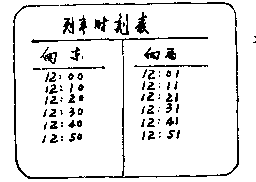 列车时刻表
向东 向西
12:00 12:01
12:10 12:11
12:20 12:21
12:30 12:31
12:40 12:41
12:50 12:51